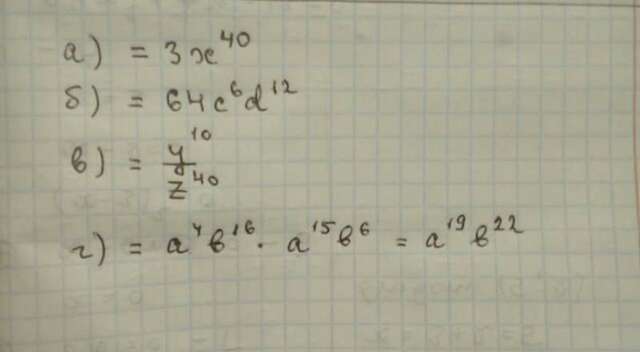 а) = 3x⁴⁰
б) = 64c⁶d¹²
в) = y¹⁰/z⁴⁰
г) = a⁴b¹⁶ · a¹⁵b⁶ = a¹⁹b²²